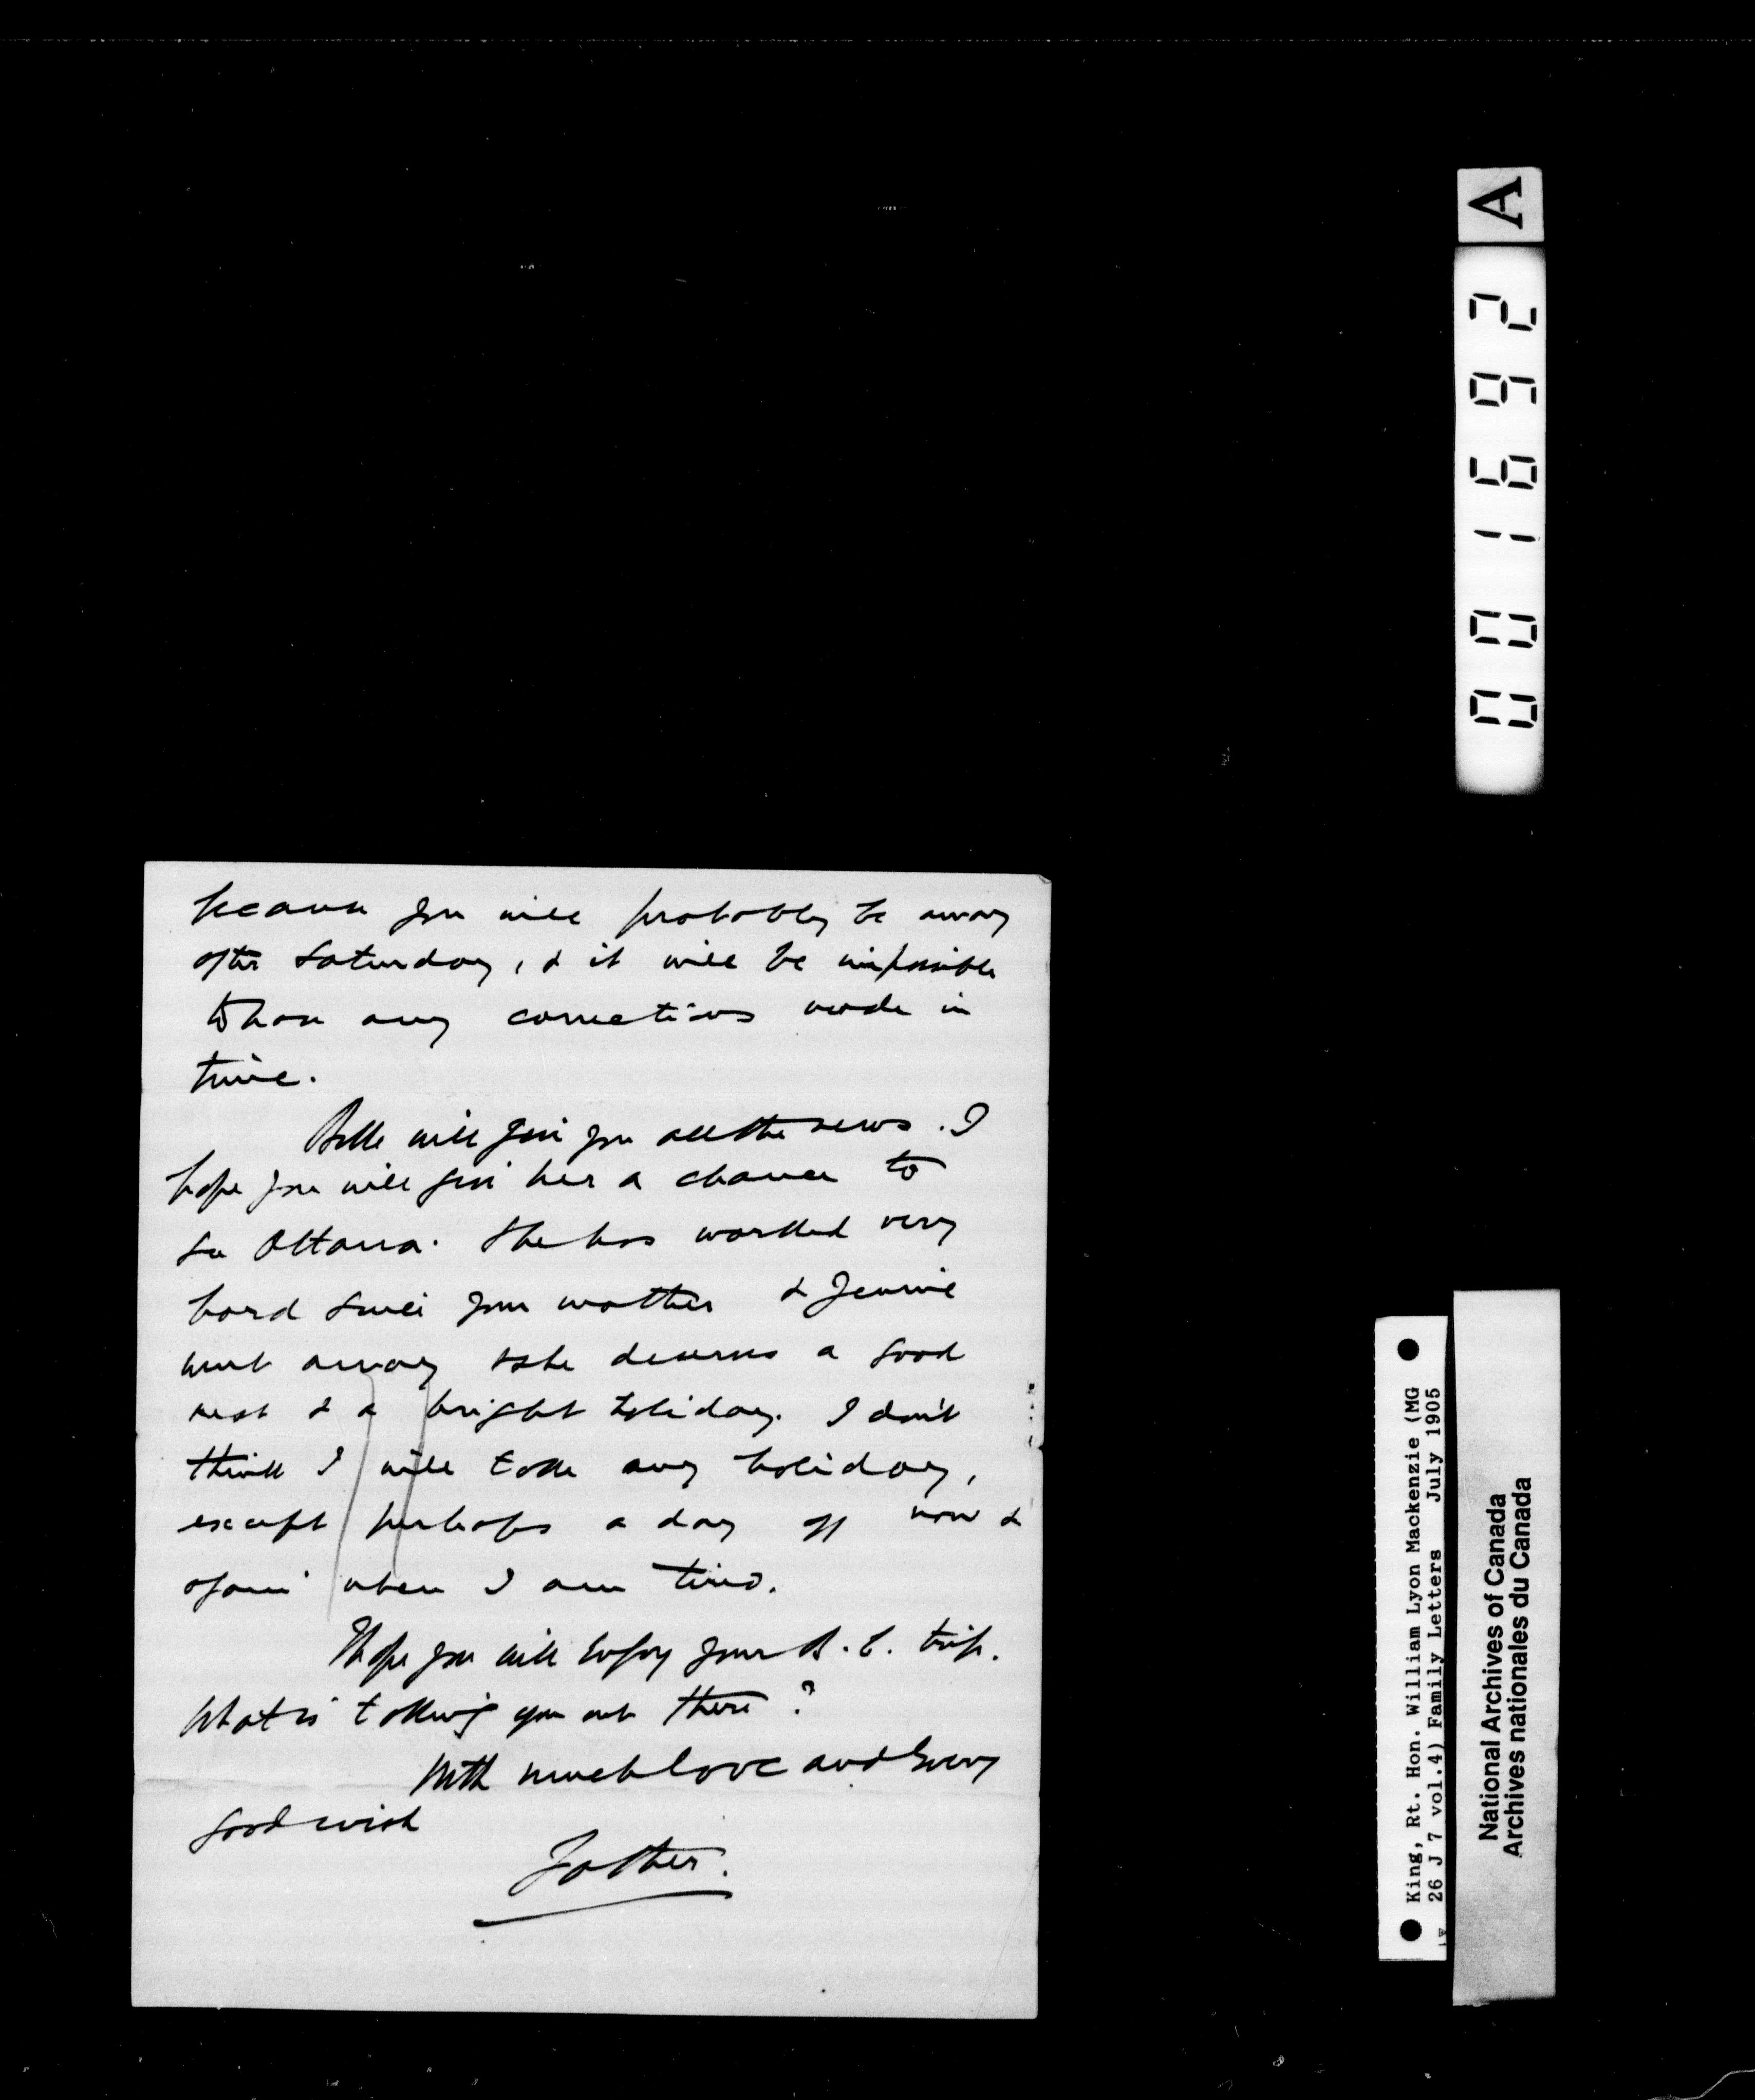 because you will probably be away
after Saturday, & it will be impossible
to have any corrections made in
time.
Belle will give you all the news. I
hope you will give her a chance to
see Ottawa. She has worked very
hard since your mother & Jennie
went away & she deserves a good
rest & a bright holiday. I don't
think I will take any holiday,
except perhaps a day off now &
again when I am tired.
Hope you will enjoy your B.C. trip.
What is taking you out there?
With much love and every
good wish
Father.
A
001692
King, Rt. Hon. William Lyon Mackenzie (MG
26 J 7 vol.4) Family Letters July 1905
National Archives of Canada
Archives nationales du Canada